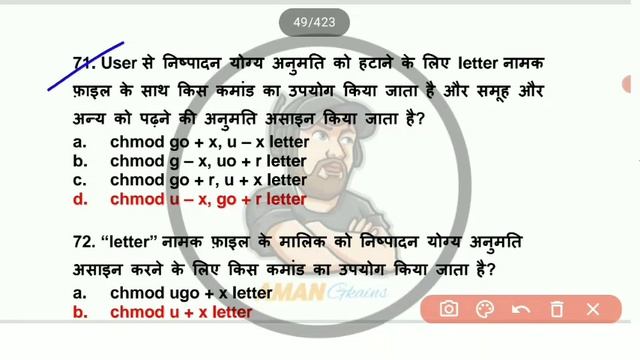 49/423
71. User से निष्पादन योग्य अनुमति को हटाने के लिए letter नामक
फ़ाइल के साथ किस कमांड का उपयोग किया जाता है और समूह और
अन्य को पढ़ने की अनुमति असाइन किया जाता है?
a. chmod go + x, u – x letter
b. chmod g – x, uo + r letter
c. chmod go + r, u + x letter
d. chmod u – x, go + r letter
72. “letter” नामक फ़ाइल के मालिक को निष्पादन योग्य अनुमति
असाइन करने के लिए किस कमांड का उपयोग किया जाता है?
a. chmod ugo + x letter
AMAN Gkains
b. chmod u + x letter